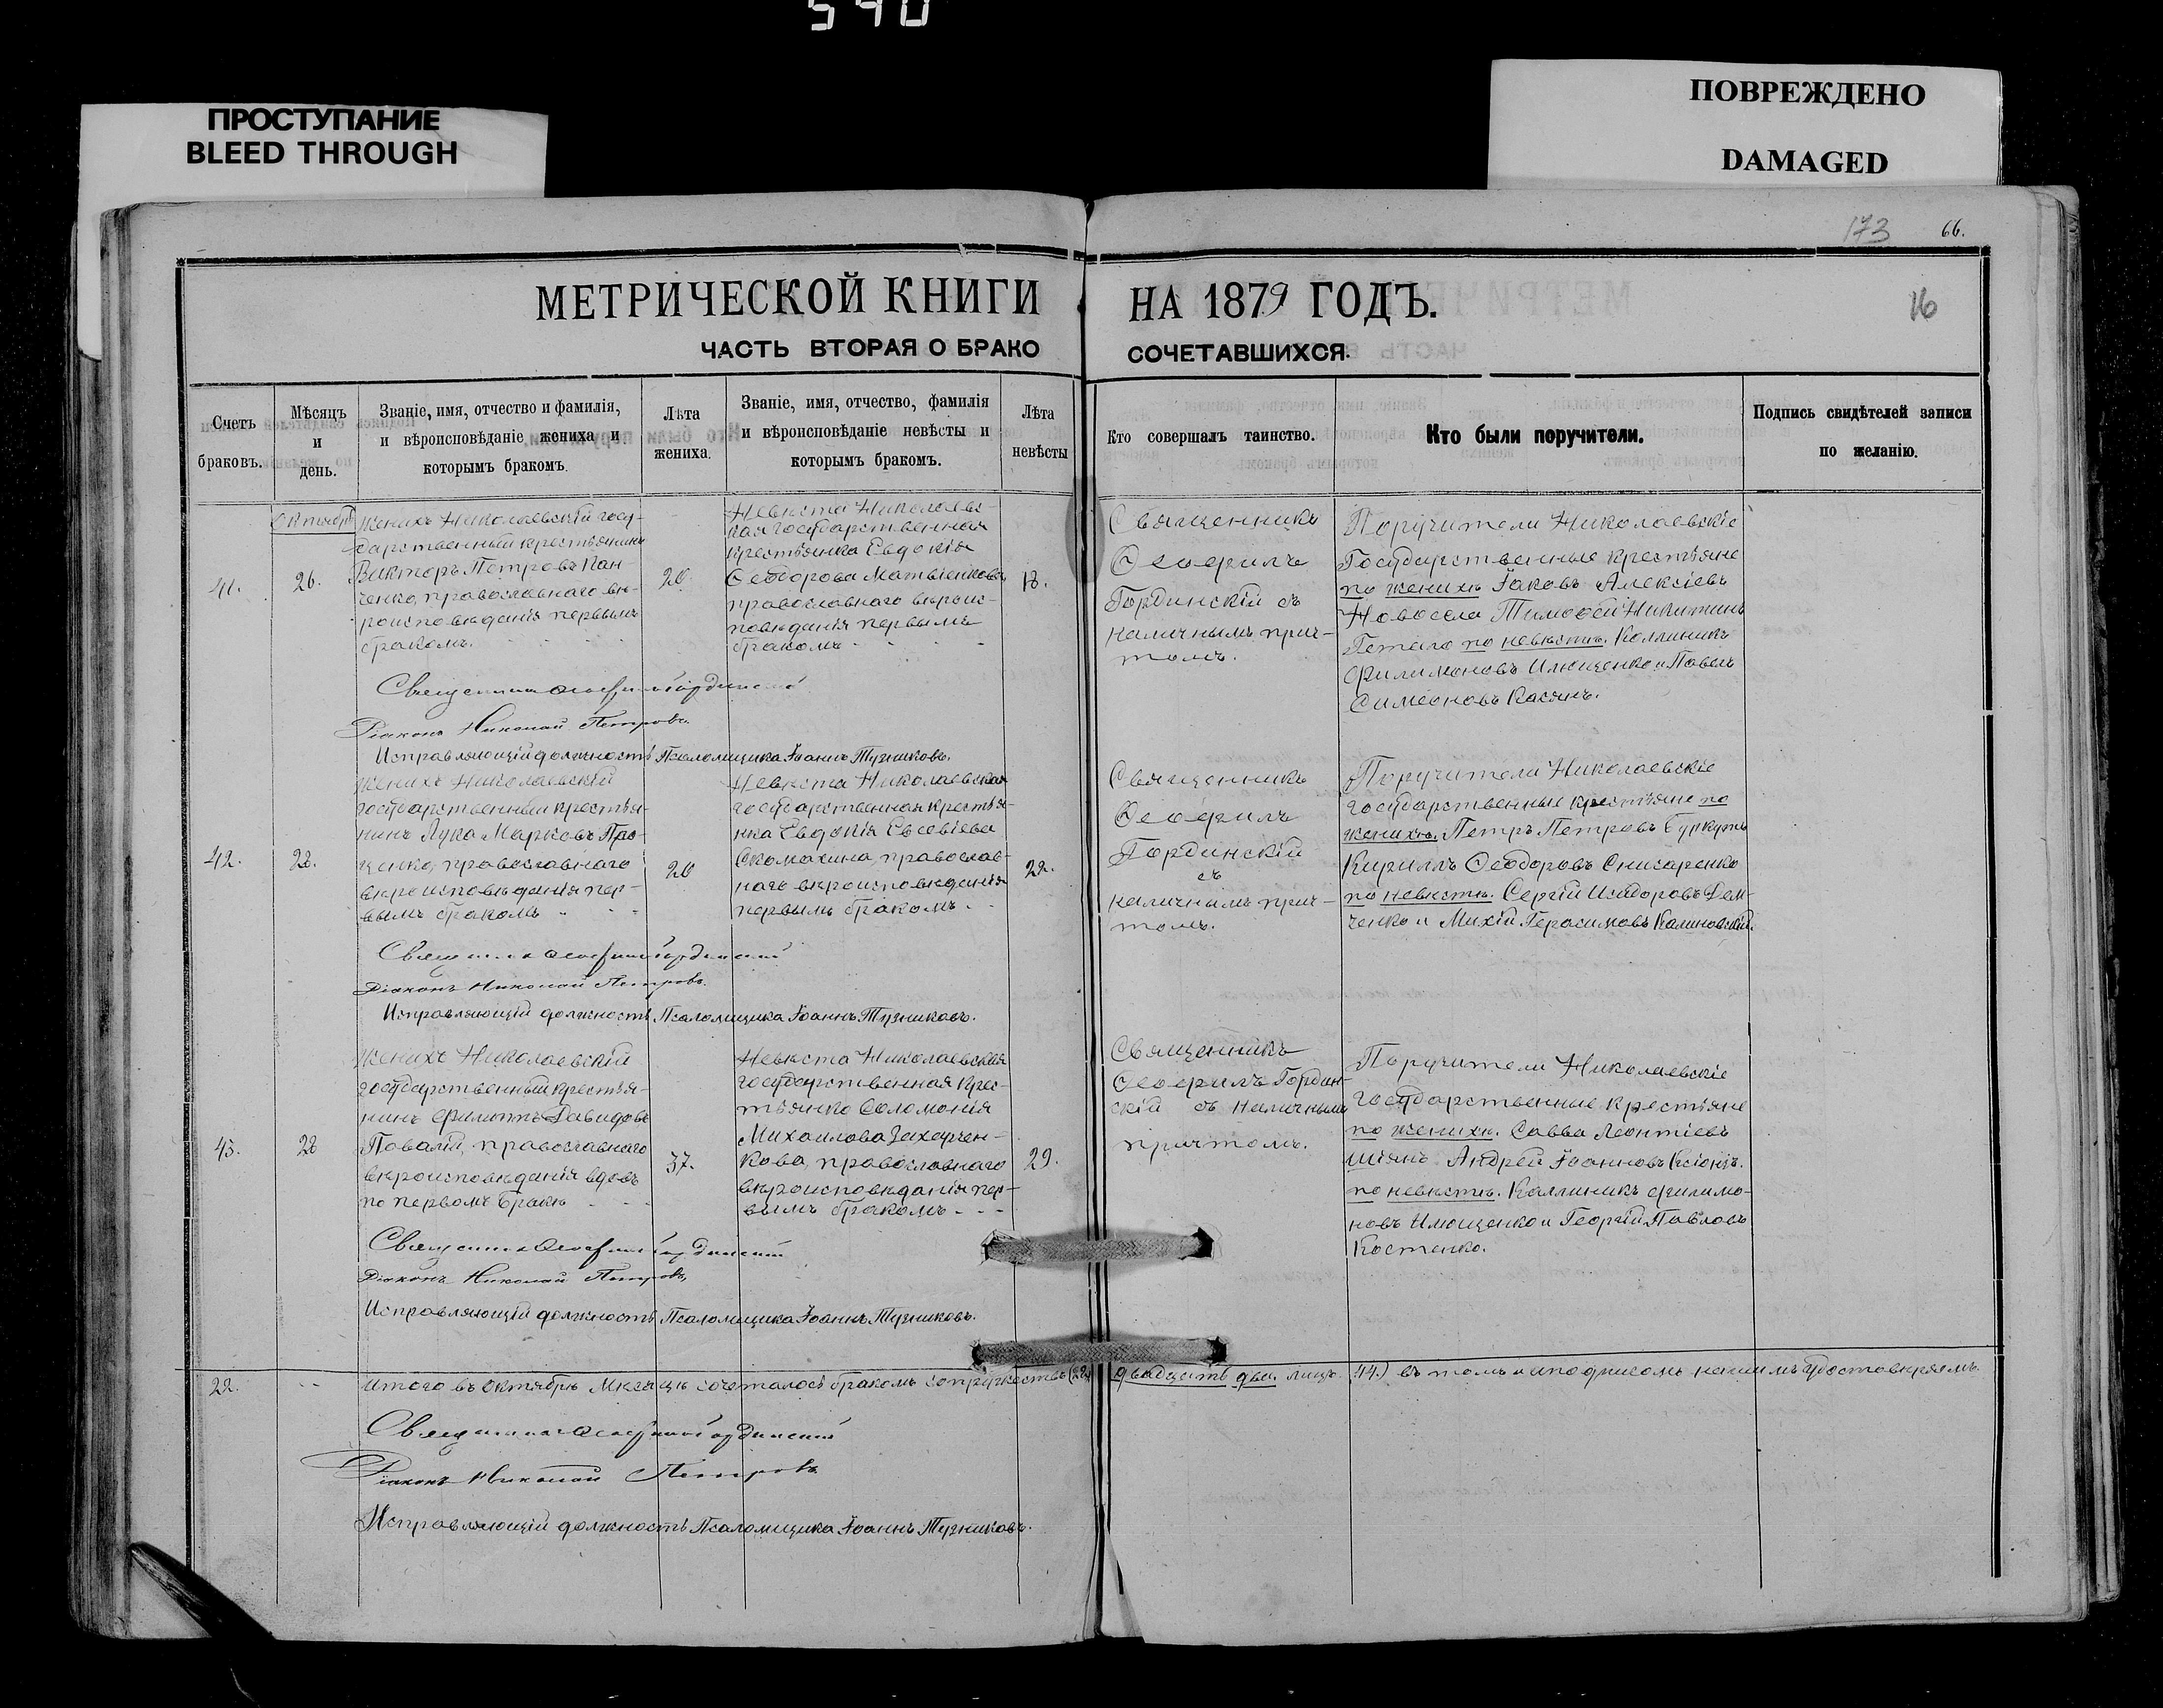 540
ПРОСТУПАНИЕ
BLEED THROUGH
ПОВРЕЖДЕНО
DAMAGED
173 66.
16
МЕТРИЧЕСКОЙ КНИГИ НА 1879 ГОДЪ.
ЧАСТЬ ВТОРАЯ О БРАКОСОЧЕТАВШИХСЯ.
Счетъ
браковъ.
Мѣсяцъ
и
день.
Званіе, имя, отчество и фамилія,
и вѣроисповѣданіе жениха и
которымъ бракомъ.
Лѣта
жениха.
Званіе, имя, отчество, фамилія
и вѣроисповѣданіе невѣсты и
которымъ бракомъ.
Лѣта
невѣсты
Кто совершалъ таинство.
Кто были поручители.
Подпись свидѣтелей записи
по желанію.
41.
Октябрь
26.
Женихъ Николаевскій госу-
дарственный крестьянинъ
Викторъ Петровъ Ган-
ченко, православнаго вѣ-
роисповѣданія первымъ
бракомъ.
20.
Невѣста Николаевс-
кая государственная
крестьянка Евдокія
Ѳеодорова Матвіенкова,
православнаго вѣроис-
повѣданія первымъ
бракомъ
18.
Священникъ
Ѳеофилъ
Гординскій съ
наличнымъ прич-
томъ.
Поручители Николаевскіе
Государственные крестьяне
по женихѣ Іаковъ Алексіевъ
Новосела Тимоѳей Никитинъ
по невѣстѣ. Каллиникъ
Филимоновъ Илющенко и Павелъ
Симеоновъ Касянъ.
Священникъ Ѳеофилъ Гординскій
Діаконъ Николай Петровъ.
Исправляющій должность Псаломщика Іоаннъ Тузниковъ.
42.
28.
Женихъ Николаевскій
государственный крестья-
нинъ Лука Марковъ
ценко, православнаго
вѣроисповѣданія пер-
вымъ бракомъ
20
Невѣста Николаевская
государственная крестья-
нка Евдокія Евсевіева
Скомахина, православ-
наго вѣроисповѣданія
первымъ бракомъ
22.
Священникъ
Ѳеофилъ
Гординскій
съ
наличнымъ прич-
томъ.
Поручители Николаевскіе
государственные крестьяне по
женихѣ. Петръ Петровъ Буркутъ
Кириллъ Ѳеодоровъ Снисаренко
по невѣстѣ. Сергій Исидоровъ Дем-
ченко и Михій Герасимовъ Калиновскій.
Священникъ Ѳеофилъ Гординскій
Діаконъ Николай Петровъ.
Исправляющій должность Псаломщика Іоаннъ Тузниковъ.
43.
28
Женихъ Николаевскій
государственный крестья-
нинъ Филиппъ Давидовъ
Повалій, православнаго
вѣроисповѣданія вдовъ
по первомъ бракѣ
37.
Невѣста Николаевская
государственная крес-
тьянка Соломонія
Михаилова Захарчен-
кова, православнаго
вѣроисповѣданія пер-
вымъ бракомъ
29.
Священникъ
Ѳеофилъ Гордин-
скій съ наличнымъ
причтомъ.
Поручители Николаевскіе
государственные крестьяне
по женихѣ. Савва Леонтіевъ
Шіянъ Андрей Іоанновъ Ксіонзъ.
по невѣстѣ. Каллиникъ Филимо-
новъ Илющенко и Георгій Павловъ
Костенко.
Священникъ Ѳеофилъ Гординскій
Діаконъ Николай Петровъ,
Исправляющій должность Псаломщика Іоаннъ Тузниковъ.
22. Итого въ Октябрѣ Мѣсяцѣ сочеталось бракомъ супружествъ (22) двадцать два. лицъ 44.) въ томъ и подписомъ нашимъ удостовѣряемъ.
Священникъ Ѳеофилъ Гординскій
Діаконъ Николай Петровъ
Исправляющій должность Псаломщика Іоаннъ Тузниковъ.